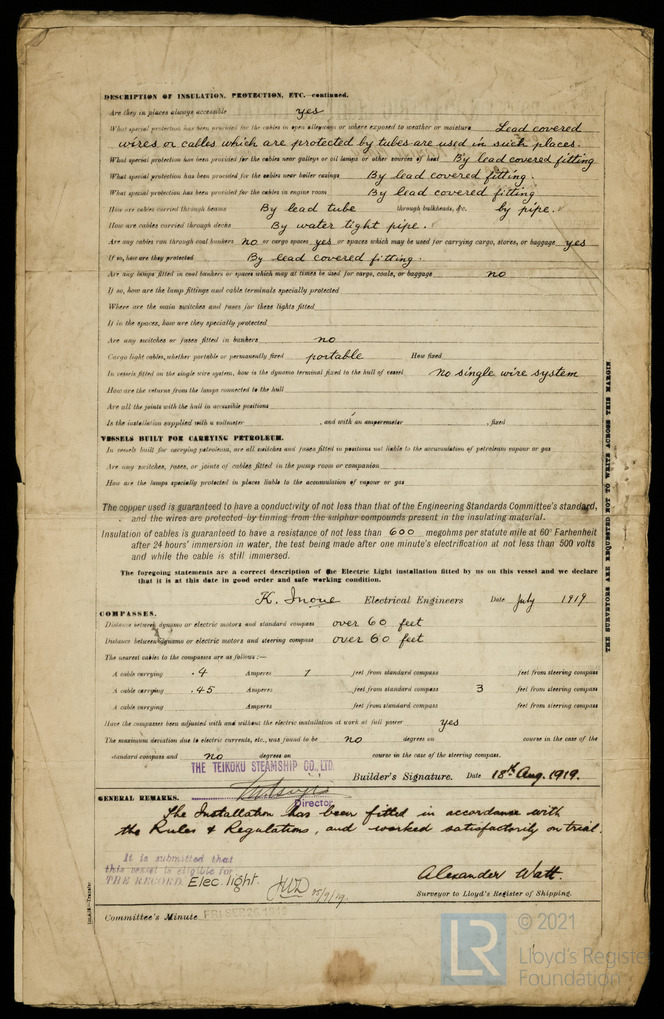 DESCRIPTION OF INSULATION, PROTECTION, ETC.—continued.
Are they in places always accessible yes
What special protection has been provided for the cables in open alleyways or where exposed to weather or moisture Lead covered
wires or cables which are protected by tubes are used in such places.
What special protection has been provided for the cables near galleys or oil lamps or other sources of heat By lead covered fitting
What special protection has been provided for the cables near boiler casings By lead covered fitting.
What special protection has been provided for the cables in engine room By lead covered fitting
How are cables carried through beams By lead tube through bulkheads, &c. by pipe.
How are cables carried through decks By water tight pipe.
Are any cables run through coal bunkers no or cargo spaces yes or spaces which may be used for carrying cargo, stores, or baggage yes
If so, how are they protected By lead covered fitting.
Are any lamps fitted in coal bunkers or spaces which may at times be used for cargo, coals, or baggage no
If so, how are the lamp fittings and cable terminals specially protected
Where are the main switches and fuses for these lights fitted
If in the spaces, how are they specially protected
Are any switches or fuses fitted in bunkers no
Cargo light cables, whether portable or permanently fixed portable How fixed
In vessels fitted on the single wire system, how is the dynamo terminal fixed to the hull of vessel no single wire system
How are the returns from the lamps connected to the hull
Are all the joints with the hull in accessible positions
Is the installation supplied with a voltmeter , and with an amperemeter , fixed
VESSELS BUILT FOR CARRYING PETROLEUM.
In vessels built for carrying petroleum, are all switches and fuses fitted in positions not liable to the accumulation of petroleum vapour or gas
Are any switches, fuses, or joints of cables fitted in the pump room or companion
How are the lamps specially protected in places liable to the accumulation of vapour or gas
The copper used is guaranteed to have a conductivity of not less than that of the Engineering Standards Committee's standard,
and the wires are protected by tinning from the sulphur compounds present in the insulating material.
Insulation of cables is guaranteed to have a resistance of not less than 600 megohms per statute mile at 60° Farhenheit
after 24 hours' immersion in water, the test being made after one minute's electrification at not less than 500 volts
and while the cable is still immersed.
The foregoing statements are a correct description of the Electric Light installation fitted by us on this vessel and we declare
that it is at this date in good order and safe working condition.
K. Inoue Electrical Engineers Date July 1919
COMPASSES.
Distance between dynamo or electric motors and standard compass over 60 feet
Distance between dynamo or electric motors and steering compass over 60 feet
The nearest cables to the compasses are as follows:—
A cable carrying .4 Amperes 7 feet from standard compass feet from steering compass
A cable carrying .45 Amperes feet from standard compass 3 feet from steering compass
A cable carrying Amperes feet from standard compass feet from steering compass
Have the compasses been adjusted with and without the electric installation at work at full power yes
The maximum deviation due to electric currents, etc., was found to be no degrees on course in the case of the
standard compass and no degrees on course in the case of the steering compass.
THE TEIKOKU STEAMSHIP CO., LTD.
Builder's Signature. Date 18th Aug. 1919.
Director
GENERAL REMARKS.
The Installation has been fitted in accordance with
the Rules & Regulations, and worked satisfactorily on trial.
It is submitted that
this vessel is eligible for
THE RECORD. Elec. light.
Alexander Watt.
Surveyor to Lloyd's Register of Shipping.
Committee's Minute FRI SEP 26 1919
THE SURVEYORS ARE REQUESTED NOT TO WRITE ACROSS THIS MARGIN.
LR
© 2021
Lloyd's Register
Foundation